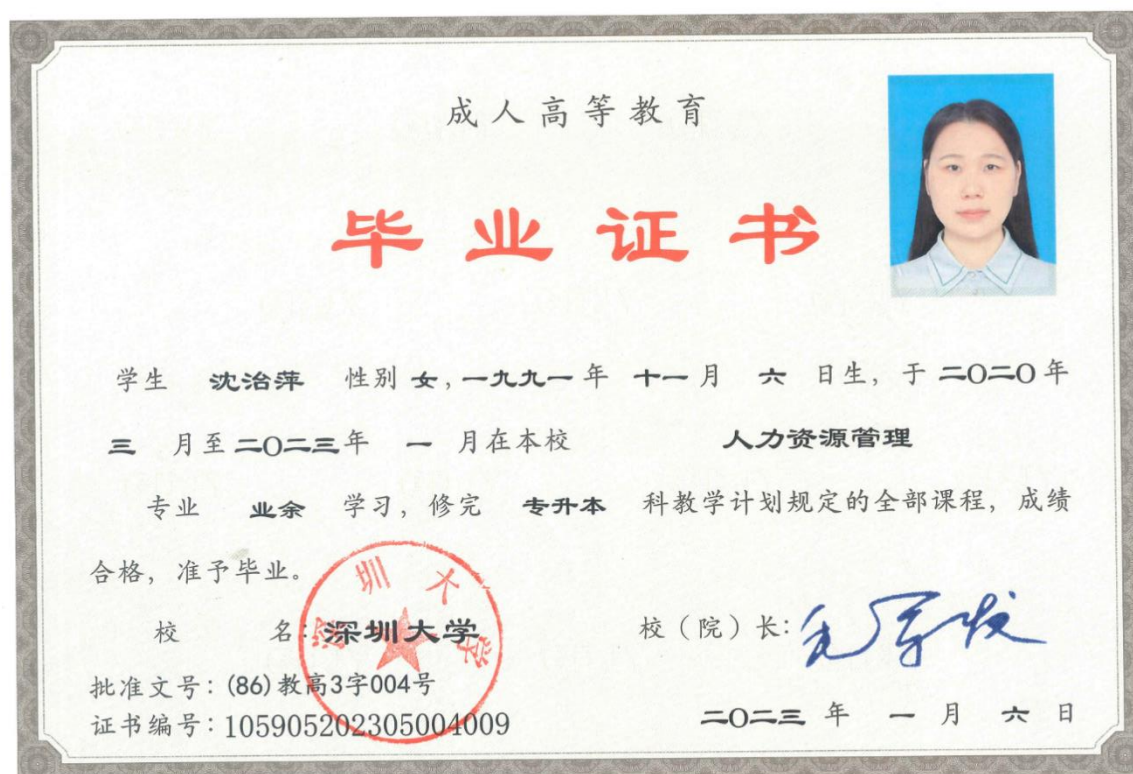 成人高等教育
毕业证书
学生 沈治萍 性别 女,一九九一年 十一月 六 日生, 于 二O二O 年
三 月至 二O二三年 一 月在本校 人力资源管理
专业 业余 学习, 修完 专升本 科教学计划规定的全部课程, 成绩
合格, 准予毕业。
校 名: 深圳大学
深圳大学
校（院）长: 毛军发
批准文号: (86)教高3字004号
证书编号: 105905202305004009
二O二三 年 一 月 六 日